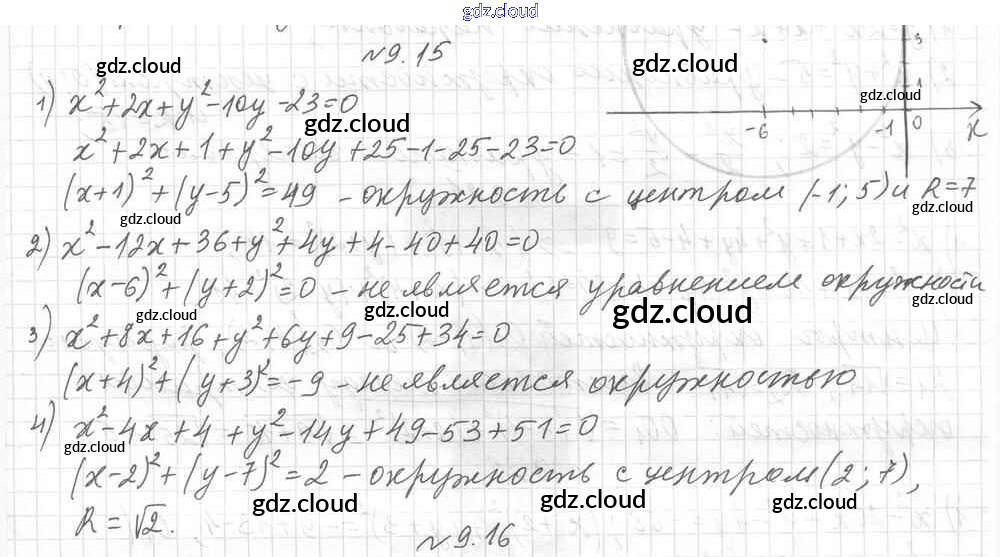 gdz.cloud
№9.15
gdz.cloud
1) x²+2x+y²-10y-23=0
gdz.cloud
x²+2x+1+y²-10y+25-1-25-23=0
(x+1)²+(y-5)²=49 - окружность с центром (-1; 5) и R=7
gdz.cloud
gdz.cloud
2) x²-12x+36+y²+4y+4-40+40=0
(x-6)²+(y+2)²=0 - не является уравнением окружности
gdz.cloud
gdz.cloud
gdz.cloud
gdz.cloud
3) x²+8x+16+y²+6y+9-25+34=0
(x+4)²+(y+3)²=-9 - не является окружностью
4) x²-4x+4+y²-14y+49-53+51=0
gdz.cloud
gdz.cloud
(x-2)²+(y-7)²=2 - окружность с центром (2; 7),
gdz.cloud
gdz.cloud
gdz.cloud
R=√2.
№9.16
3
1
gdz.cloud
-6
-1
0
x